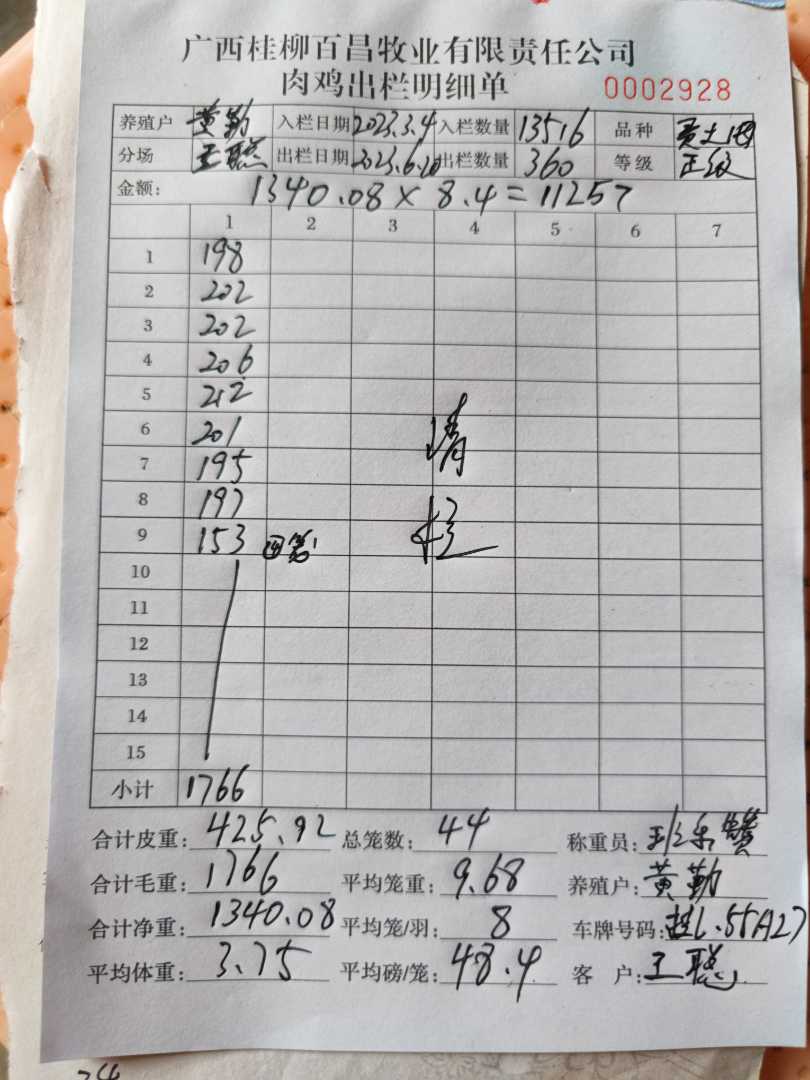 广西桂柳百昌牧业有限责任公司
肉鸡出栏明细单 0002928
养殖户 黄勤 入栏日期 2023.3.4 入栏数量 13516 品种
分场 王聪 出栏日期 2023.6.20 出栏数量 360 等级 正级
金额: 1340.08 × 8.4 = 11257
1 2 3 4 5 6 7
1 198
2 202
3 202
4 206
5 212
6 201
7 195
8 197
9 153 回笼
10
11
12
13
14
15
清栏
小计 1766
合计皮重: 425.92 总笼数: 44 称重员:
合计毛重: 1766 平均笼重: 9.68 养殖户: 黄勤
合计净重: 1340.08 平均笼/羽: 8 车牌号码: 桂L.55A27
平均体重: 3.75 平均磅/笼: 48.4 客户: 王聪